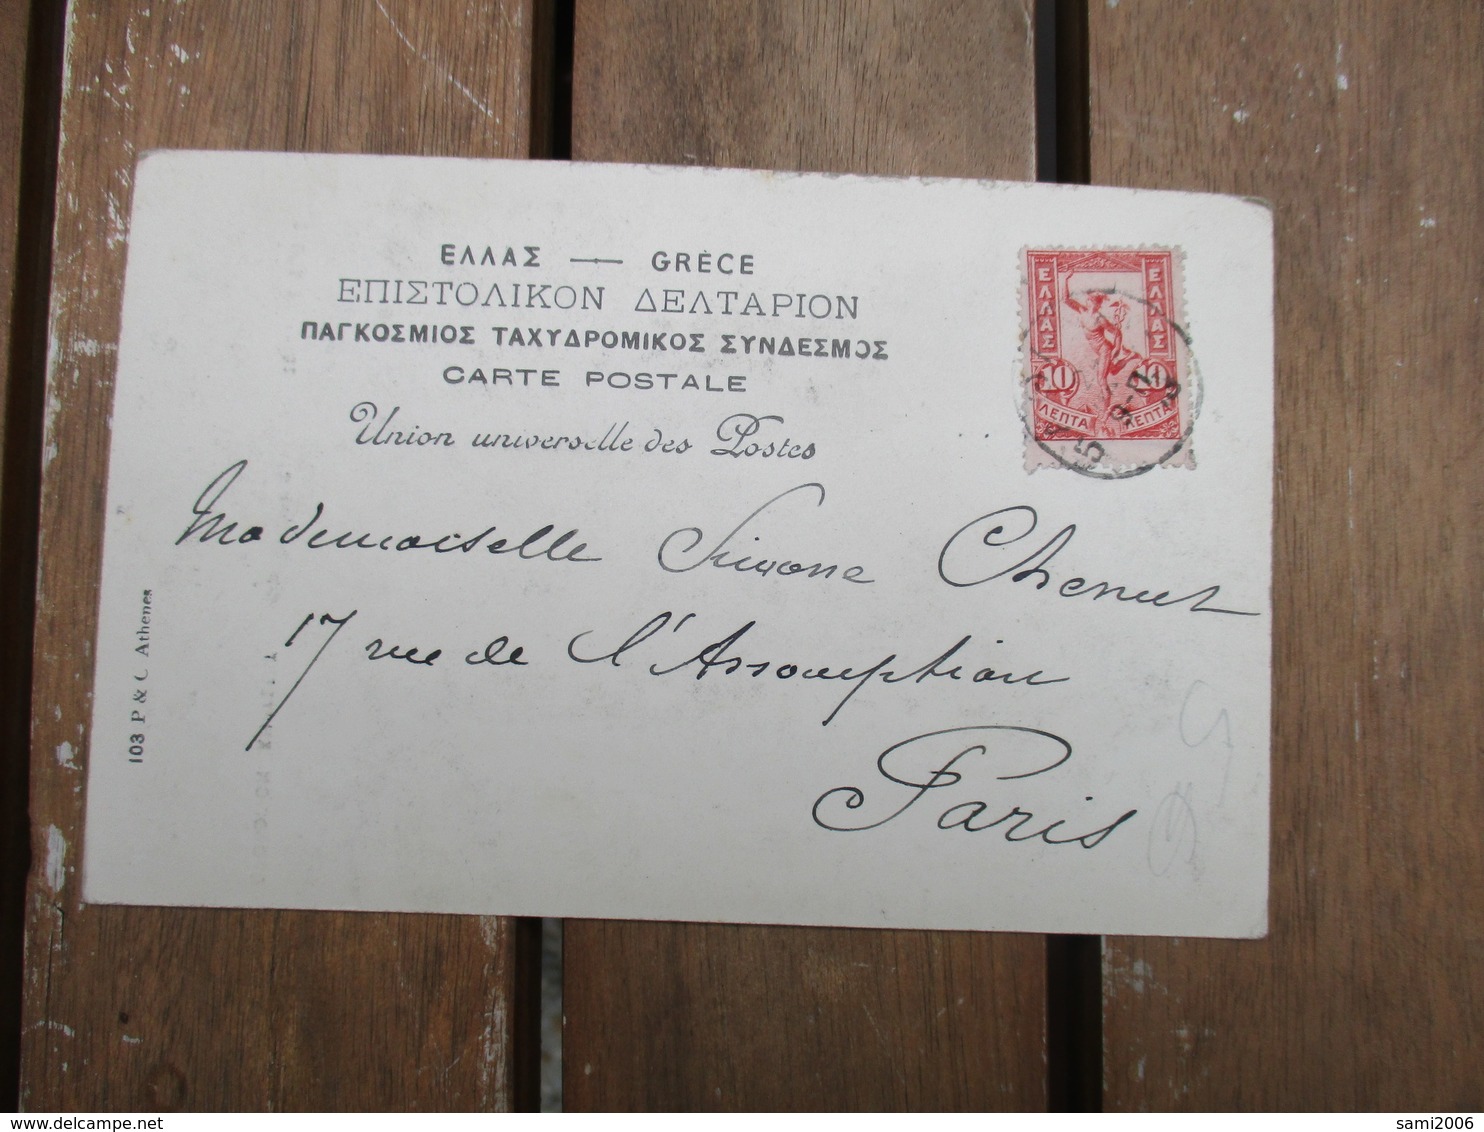 ΕΛΛΑΣ — GRÈCE
ΕΠΙΣΤΟΛΙΚΟΝ ΔΕΛΤΑΡΙΟΝ
ΠΑΓΚΟΣΜΙΟΣ ΤΑΧΥΔΡΟΜΙΚΟΣ ΣΥΝΔΕΣΜΟΣ
CARTE POSTALE
Union universelle des Postes
ΕΛΛΑΣ ΕΛΛΑΣ
10 10
ΛΕΠΤΑ ΛΕΠΤΑ
Mademoiselle Simone Chenut
17 rue de l'Assomption
Paris
103 P & C. Athenes
sami2006